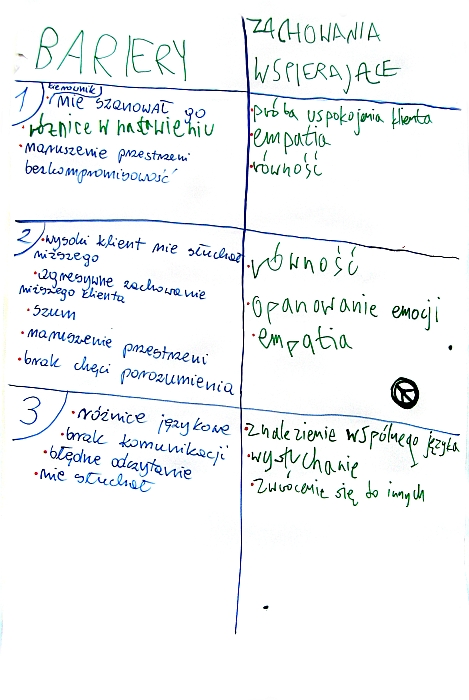 BARIERY
ZACHOWANIA
WSPIERAJĄCE
1
kierownik
• nie szanował go
• różnice w nastawieniu
• naruszenie przestrzeni
bezkompromisowość
• próba uspokojenia klienta
• empatia
• równość
2
• wysoki klient nie słuchał
niższego
• agresywne zachowanie
niższego klienta
• szum
• naruszenie przestrzeni
• brak chęci porozumienia
• równość
• opanowanie emocji
• empatia
3
• różnice językowe
• brak komunikacji
• błędne odczytanie
• nie słuchał
• znalezienie wspólnego języka
• wysłuchanie
• zwrócenie się do innych